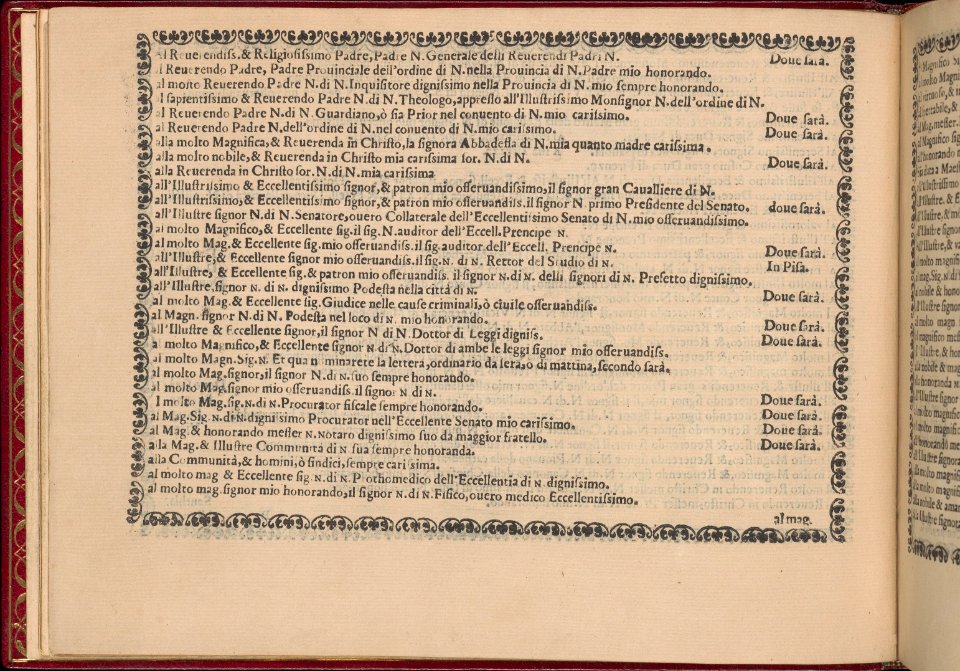 Al Reuerendiss. & Religiosissimo Padre, Padre N. Generale delli Reuerendi Padri N. Doue sarà.
al Reuerendo Padre, Padre Prouinciale dell'ordine di N. nella Prouincia di N. Padre mio honorando.
al molto Reuerendo Padre N. di N. Inquisitore dignissimo nella Prouincia di N. mio sempre honorando.
al sapientissimo & Reuerendo Padre N. di N. Theologo, appresso all'Illustrissimo Monsignor N. dell'ordine di N.
al Reuerendo Padre N. di N. Guardiano, ò sia Prior nel conuento di N. mio carissimo. Doue sarà.
al Reuerendo Padre N. dell'ordine di N. nel conuento di N. mio carissimo. Doue sarà.
alla molto Magnifica, & Reuerenda in Christo, la signora Abbadessa di N. mia quanto madre carissima.
alla molto nobile, & Reuerenda in Christo mia carissima sor. N. di N. Doue sarà.
alla Reuerenda in Christo sor. N. di N. mia carissima
all'Illustrissimo & Eccellentissimo signor, & patron mio osseruandissimo, il signor gran Caualliere di N.
all'Illustrissimo, & Eccellentissimo signor, & patron mio osseruandiss. il signor N. primo Presidente del Senato.
all'Illustre signor N. di N. Senatore, ouero Collaterale dell'Eccellentissimo Senato di N. mio osseruandissimo. doue sarà.
al molto Magnifico, & Eccellente sig. il sig. N. auditor dell'Eccell. Prencipe N.
al molto Mag. & Eccellente sig. mio osseruandiss. il sig. auditor dell'Eccell. Prencipe N. Doue sarà.
all'Illustre, & Eccellente signor mio osseruandiss. il sig. N. di N. Rettor del Studio di N. In Pisa.
all'Illustre, & Eccellente sig. & patron mio osseruandiss. il signor N. di N. delli signori di N. Prefetto dignissimo.
all'Illustre, signor N. di N. dignissimo Podestà nella città di N. Doue sarà.
al molto Mag. & Eccellente sig. Giudice nelle cause criminali, ò ciuile osseruandiss.
al Magn. signor N. di N. Podestà nel loco di N. mio honorando. Doue sarà.
all'Illustre & Eccellente signor, il signor N di N. Dottor di Leggi digniss. Doue sarà.
al molto Magnifico, & Eccellente signor N di N. Dottor di ambe le leggi signor mio osseruandiss.
al molto Magn. Sig. N. Et qua nominarete la lettera, ordinario da sera, o di mattina, secondo sarà.
al molto Mag. signor, il signor N. di N. suo sempre honorando.
al molto Mag. signor mio osseruandiss. il signor N di N. Doue sarà.
al molto Mag. sig. N. di N. Procurator fiscale sempre honorando. Doue sarà.
al Mag. Sig. N. di N. dignissimo Procurator nell'Eccellente Senato mio carissimo. Doue sarà.
al Mag. & honorando messer N. notaro dignissimo suo da maggior fratello. Doue sarà.
alla Mag. & Illustre Communità di N. sua sempre honoranda.
alla Communità, & homini, ò sindici, sempre carissima.
al molto mag & Eccellente sig. N. di N. Prothomedico dell'Eccellentia di N. dignissimo.
al molto mag. signor mio honorando, il signor N. di N. Fisico, ouero medico Eccellentissimo.
al mag.